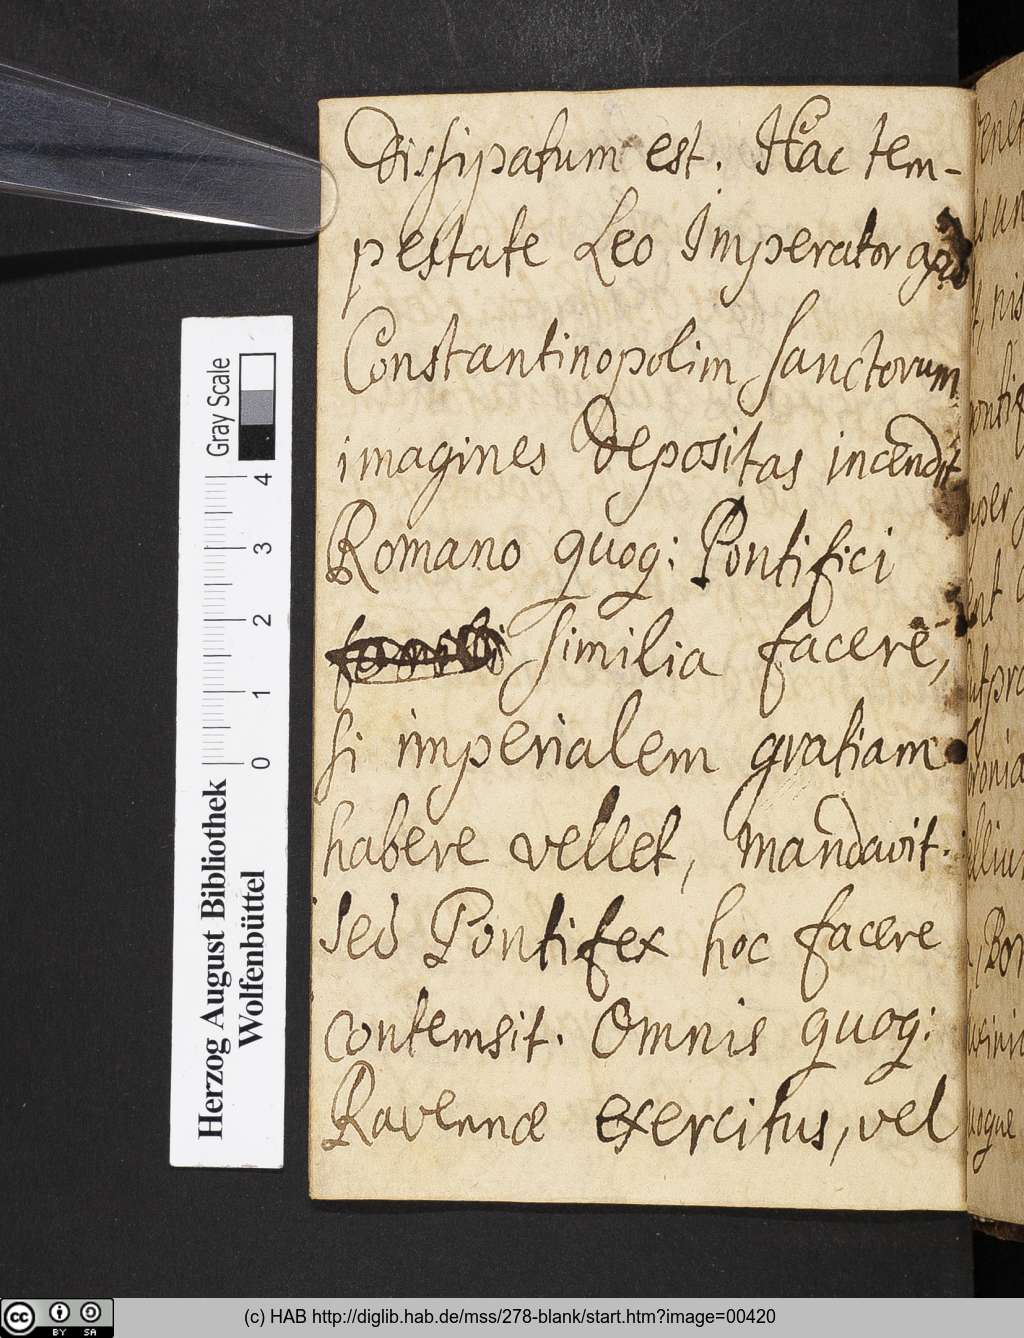 dissipatum est. Hac tem-
pestate Leo Imperator apud
Constantinopolim Sanctorum
imagines depositas incendit
Romano quoq; Pontifici
similia facere,
si imperialem gratiam
habere vellet, mandavit.
sed Pontifex hoc facere
contemsit. Omnis quoq;
Ravennæ exercitus, vel
Herzog August Bibliothek
Wolfenbüttel
0 1 2 3 4
Gray Scale
cc BY SA
(c) HAB http://diglib.hab.de/mss/278-blank/start.htm?image=00420